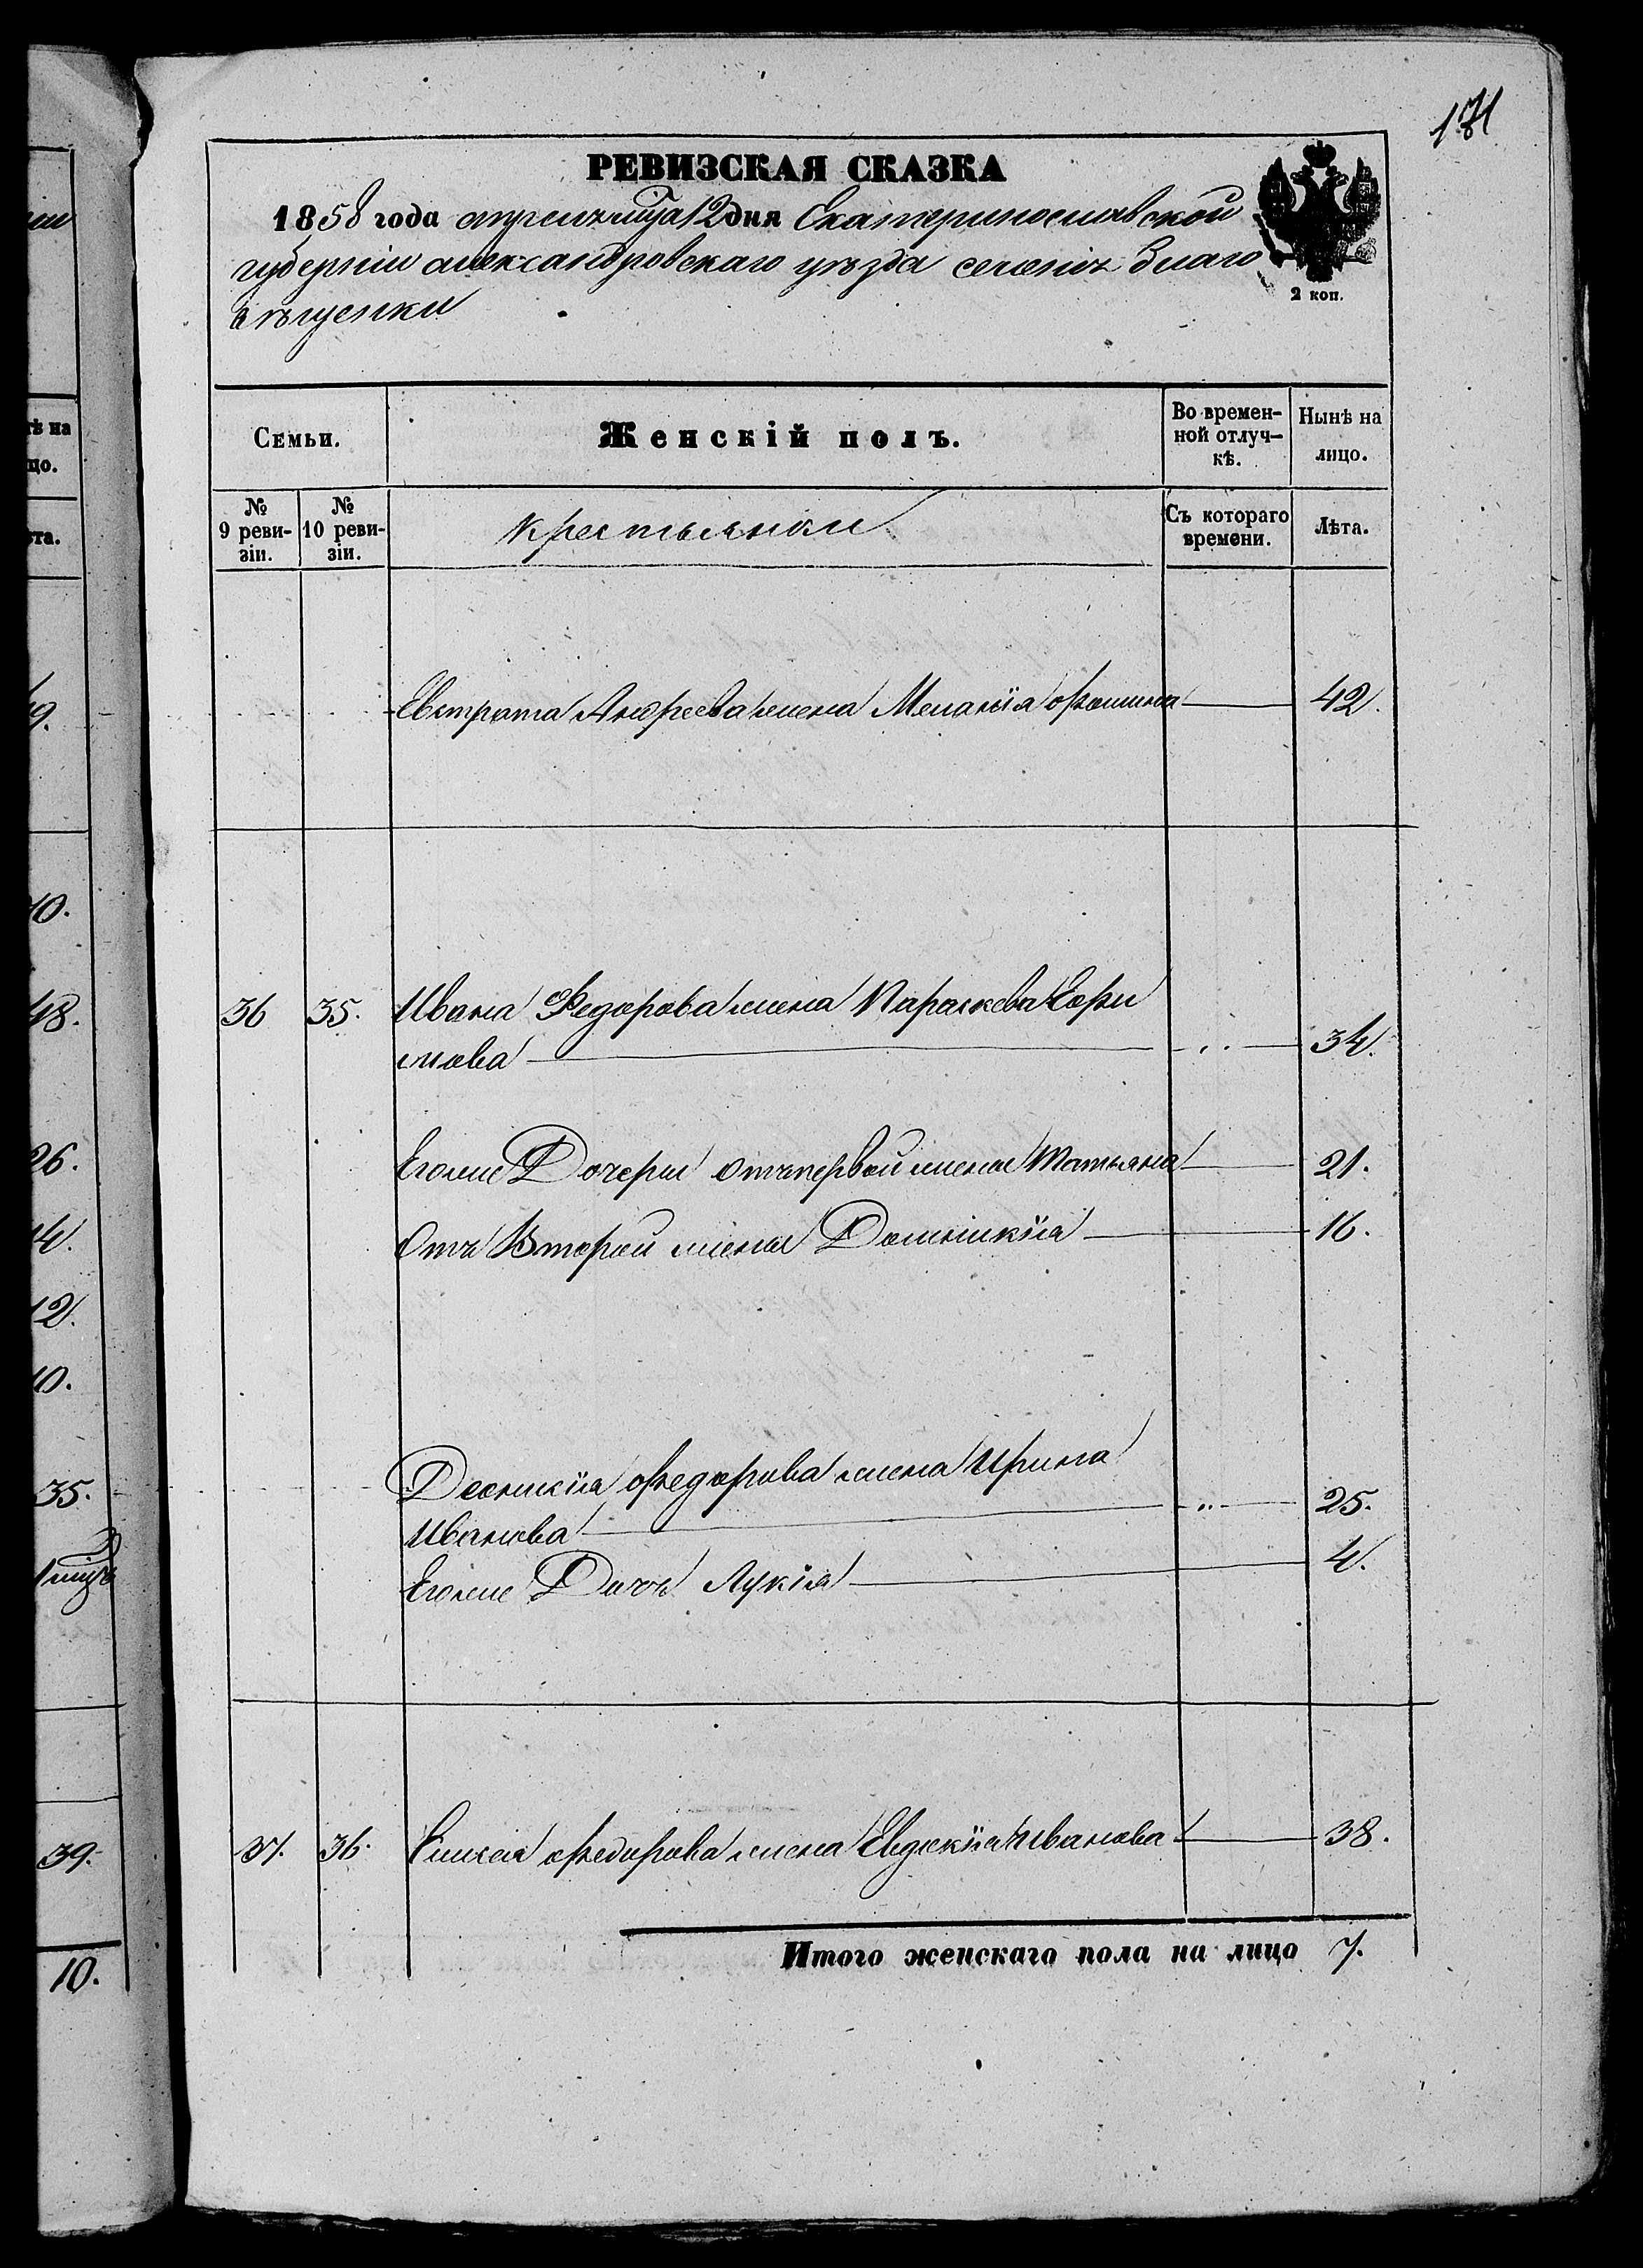 171
РЕВИЗСКАЯ СКАЗКА
1858 года апреля мца 12 дня Екатеринославской
губерніи александровскаго уезда селенія Благо
вещенки
2 коп.
Семьи.
Женскій полъ.
Во времен-
ной отлуч-
кѣ.
Нынѣ на
лицо.
№
9 реви-
зіи.
№
10 реви-
зіи.
крестьянки
Съ котораго
времени.
Лѣта.
Евстрата Андреева жена Меланія Фомина 42.
36 35. Ивана Федорова жена Параскева Ефи
мова 34.
Егоже Дочери отъ первой жены Татьяна 21.
Отъ Второй жены Домникія 16.
Федорова жена Ирина
Иванова 25.
Егоже Дочь Лукія 4.
37. 36. Федорова жена Евдокія Иванова 38.
Итого женскаго пола на лицо 7.
ѣ на
цо.
та.
19.
10.
48.
26.
14.
12.
10.
35.
1 мцъ
39.
10.